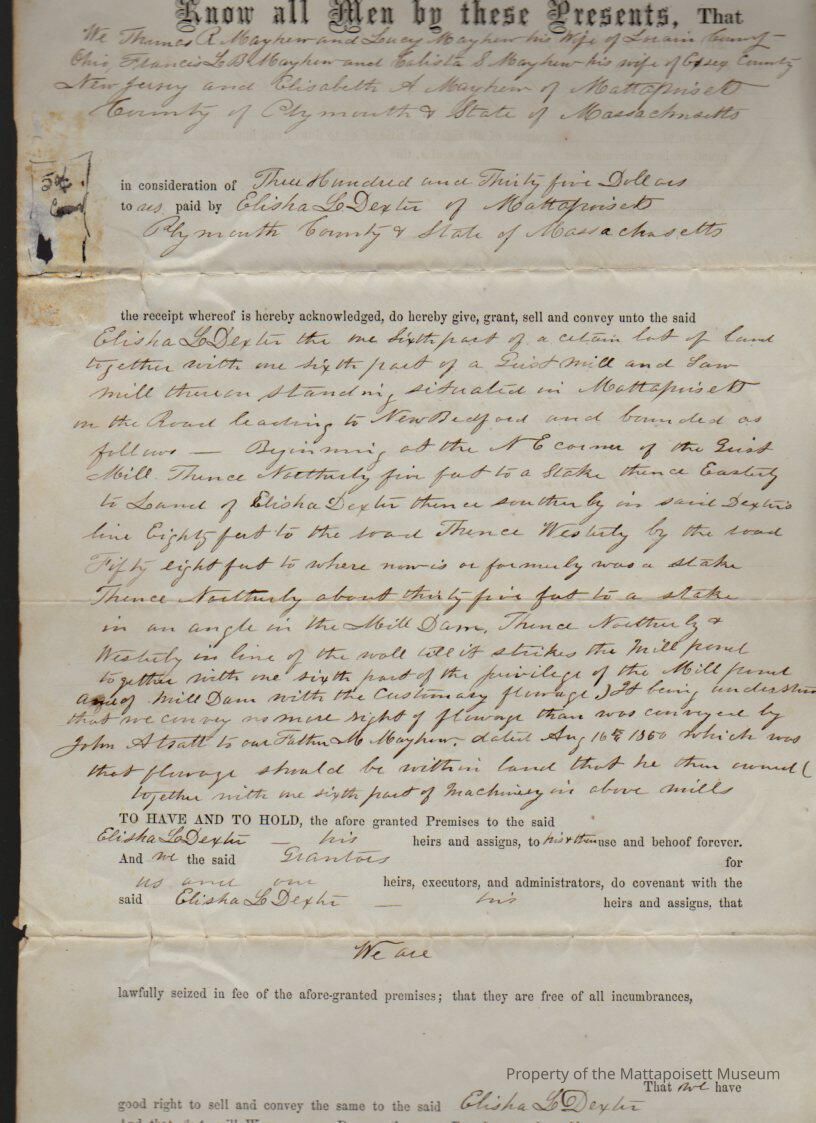 Know all Men by these Presents, That
We Thomas R Mayhew and Lucy Mayhew his Wife of Lorain County
Ohio, Francis L B Mayhew and Calista S Mayhew his wife of Essex County
New Jersey and Elisabeth A Mayhew of Mattapoisett
County of Plymouth & State of Massachusetts
5 ct
in consideration of Three Hundred and Thirty five Dollars
to us paid by Elisha L Dexter of Mattapoisett
Plymouth County & State of Massachusetts
the receipt whereof is hereby acknowledged, do hereby give, grant, sell and convey unto the said
Elisha L Dexter the one sixth part of a cetain lot of land
together with one sixth part of a Grist mill and Saw
mill thereon standing situated in Mattapoisett
on the Road leading to New Bedford and bounded as
follows — Beginning at the N E corner of the Grist
Mill. Thence Northerly five feet to a Stake thence Easterly
to Land of Elisha Dexter thence southerly in said Dexters
line Eighty feet to the road Thence Westerly by the road
Fifty eight feet to where now is or formerly was a stake
Thence Northerly about thirty five feet to a stake
in an angle in the Mill Dam, Thence Northerly &
Westerly in line of the wall till it strikes the Mill pond
together with one sixth part of the privilege of the Mill pond
and of Mill Dam with the Customary flowage) It being understood
that we convey no more right of flowage than was conveyed by
John Atsatt to our Father M Mayhew, dated Aug 16th 1850 which was
that flowage should be within land that he then owned (
together with one sixth part of Machinery in above mills
TO HAVE AND TO HOLD, the afore granted Premises to the said
Elisha L Dexter — his heirs and assigns, to his & their use and behoof forever.
And we the said Grantors for
us and our heirs, executors, and administrators, do covenant with the
said Elisha L Dexter — his heirs and assigns, that
We are
lawfully seized in fee of the afore-granted premises; that they are free of all incumbrances,
Property of the Mattapoisett Museum
That we have
good right to sell and convey the same to the said Elisha L Dexter